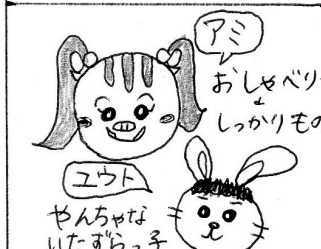 アミ
おしゃべり
↓
しっかりもの
ユウト
やんちゃな
いたずらっ子